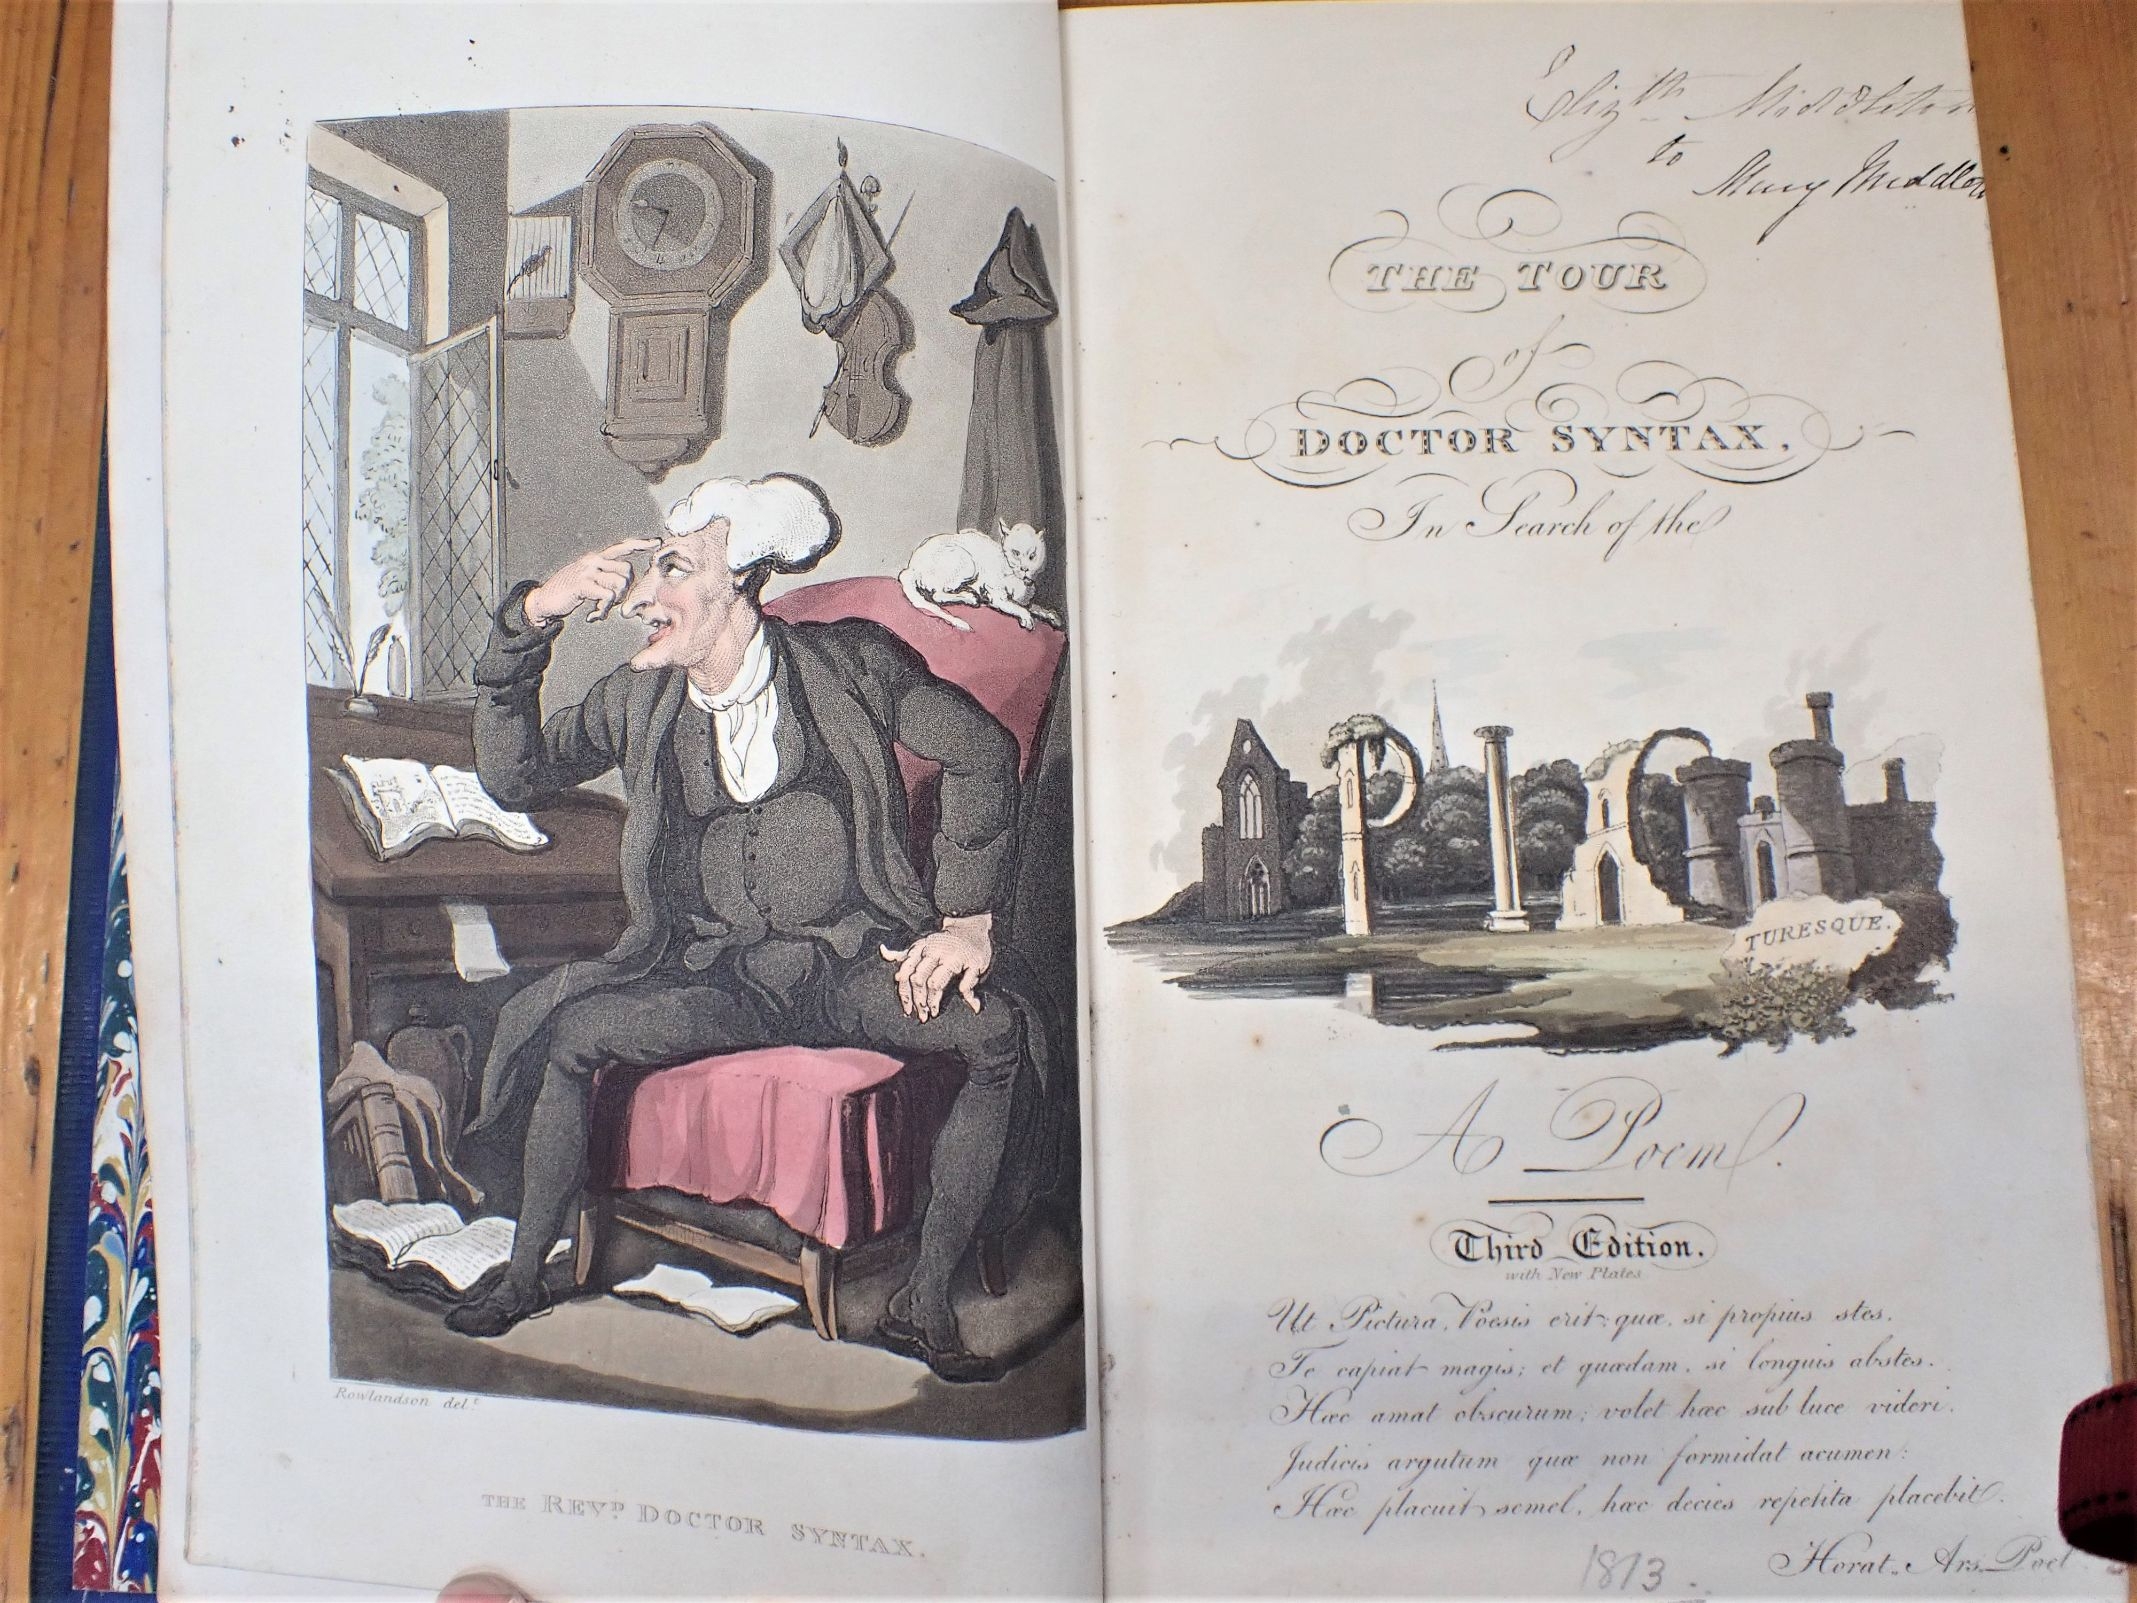 Rowlandson delt.
THE REVD. DOCTOR SYNTAX.
Elizth Middleton
to Mary Middleton
THE TOUR
of
DOCTOR SYNTAX,
In Search of the
PIC
TURESQUE.
A Poem.
Third Edition.
with New Plates
Ut Pictura, Poesis erit; quæ, si propius stes,
Te capiat magis; et quædam, si longuis abstes.
Hæc amat obscurum; volet hæc sub luce videri,
Judicis argutum quæ non formidat acumen:
Hæc placuit semel, hæc decies repetita placebit.
Horat. Ars. Poet
1813